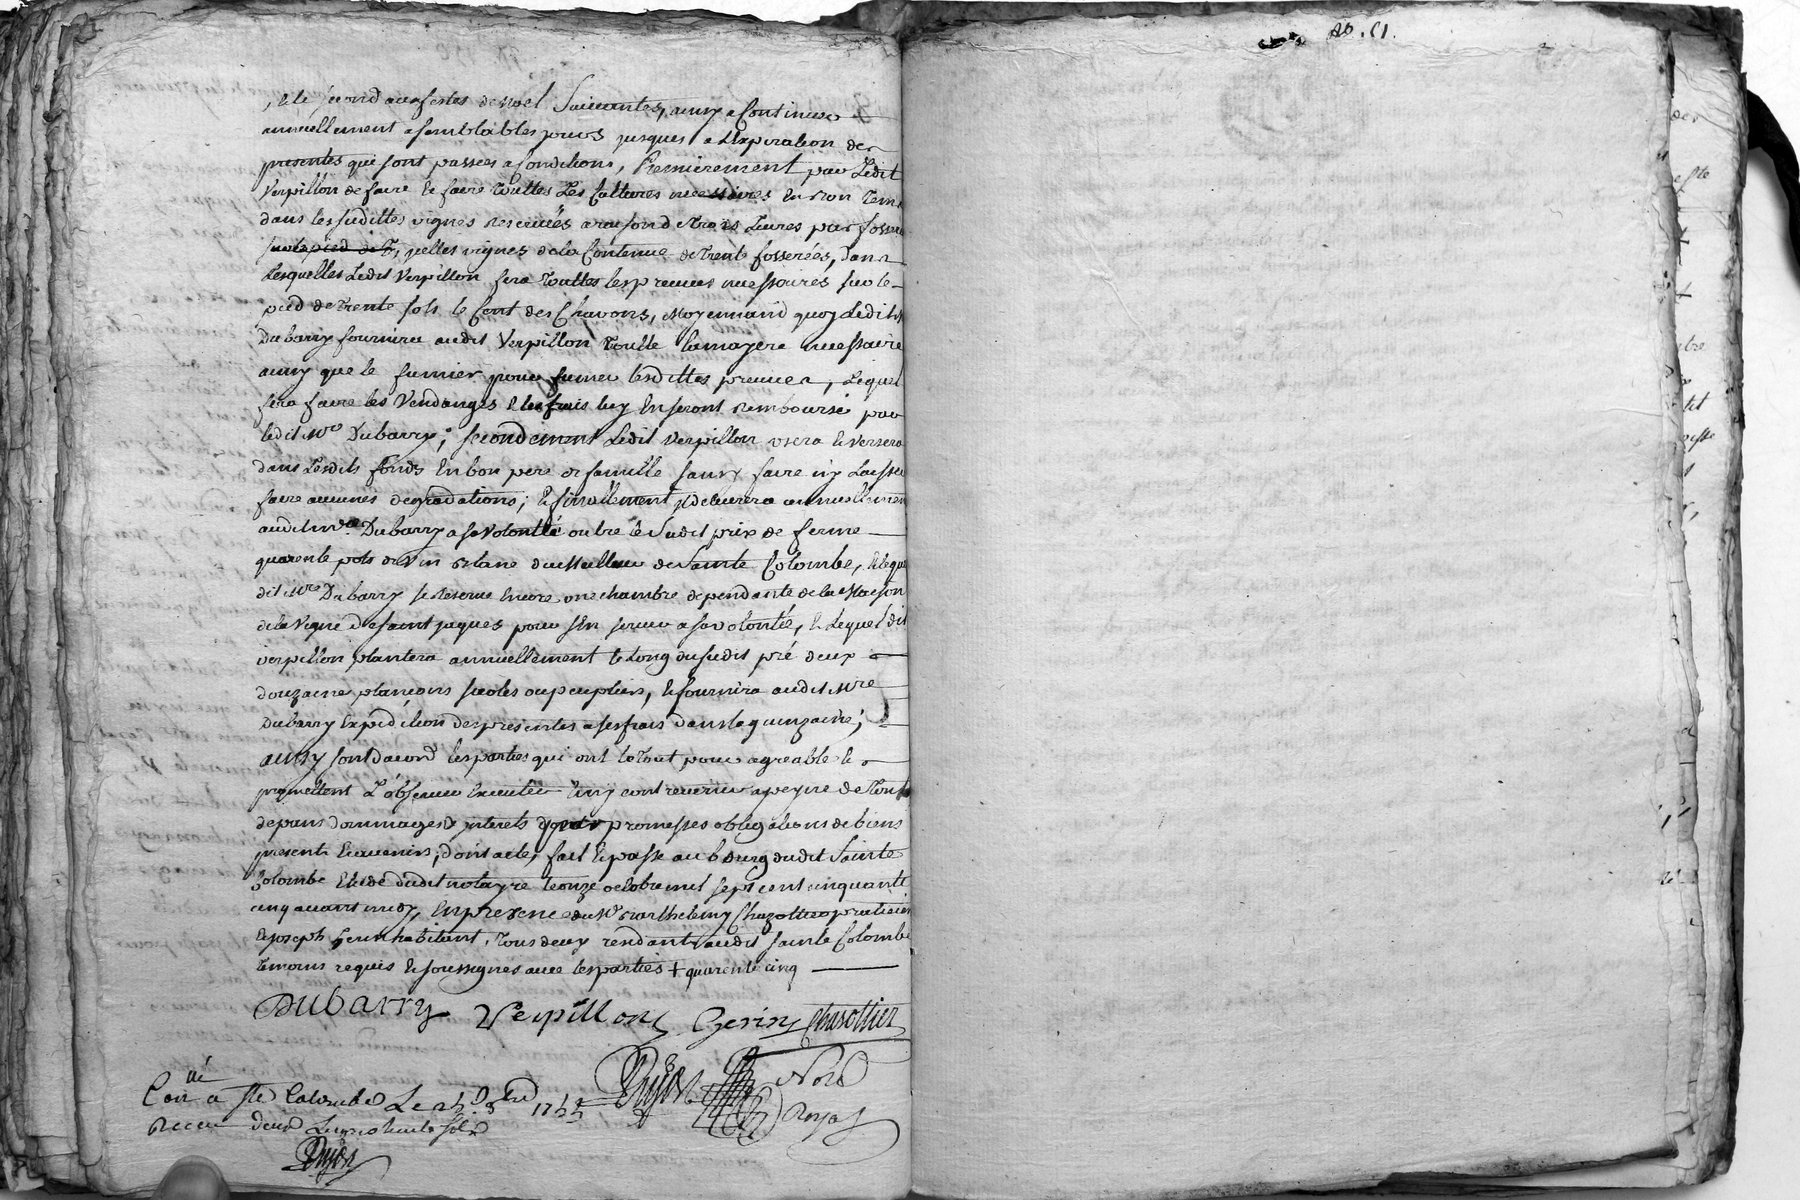 , et le second aux festes de Noel Suivantes, ainsy a Continuer
annüellement a semblables jours jusques a l'Expiration des
presentes qui sont passées a Conditions, Premierement par Ledit
Verpillon de faire et faire toutes Les Cultures necessaires En bon tems
dans les susdittes vignes reservées a raison de trois Livres par fosserée
sur le pied de T, quelles vignes de la Contenue de trente fosserées, dans
Lesquelles Ledit Verpillon fera toutes les preuves necessaires sur le
pied de trente sols le Cent des Chavons, Moyennand quoy Ledit Mre
Dubarry fournira audit Verpillon toutte la mayere necessaire
ainsy que le fumier pour fumer lesdittes preuves, Lequel
fera faire les Vendanges et les frais luy En seront remboursé par
ledit Mre Dubarry; secondement Ledit Verpillon usera et versera
dans Lesdits fonds En bon pere de famille sans y faire ny Laisser
faire aucunes degradations; et finallement il delivrera annuellement
audit Mre Dubarry a sa Volontté outre le Susdit prix de ferme
quarente pots de Vin blanc du Meilleur de Sainte Colombe, et le que
dit Mre Dubarry se reserve Encore une chambre dependante de la Maison
de la Vigne de saint jaques pour s'En servir a sa volontée, et Lequel dit
verpillon plantera annüellement le Long du susdit pré deux
douzaine plançons saoles ou peupliers, et fournira audit Mre
Dubarry Expedition des presentes a ses frais dans la quinzaine;
ainsy sont d'acord les parties qui ont le tout pour agreable et
promettent L'observer Executer Sans y contrevenir a peyne de tous
depans dommages et interets promesses obligations de biens
presents et avenirs, dont acte, fait et passé au bourg dudit Sainte
Colombe Etude dudit notayre le onze octobre mil sept cent cinquante
cinq avant midy, En presence du Sr Barthelemy Chazottier praticien
et joseph Gerin habitant, tous deux rendants audit Sainte Colombe
temoins requis et soussignés avec les parties + quarente cinq
Dubarry Verpillon Gerin Chasottier
Dujon Notre
Royal
Con.llé a Ste Colombe Le 1755
Receu deux Livres huit sols
Dujon